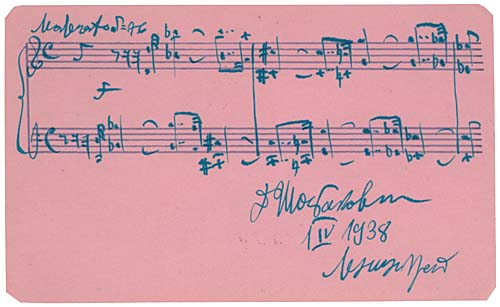 Moderato ♪=76
f
Д Шостакович
1 IV 1938
Ленинград